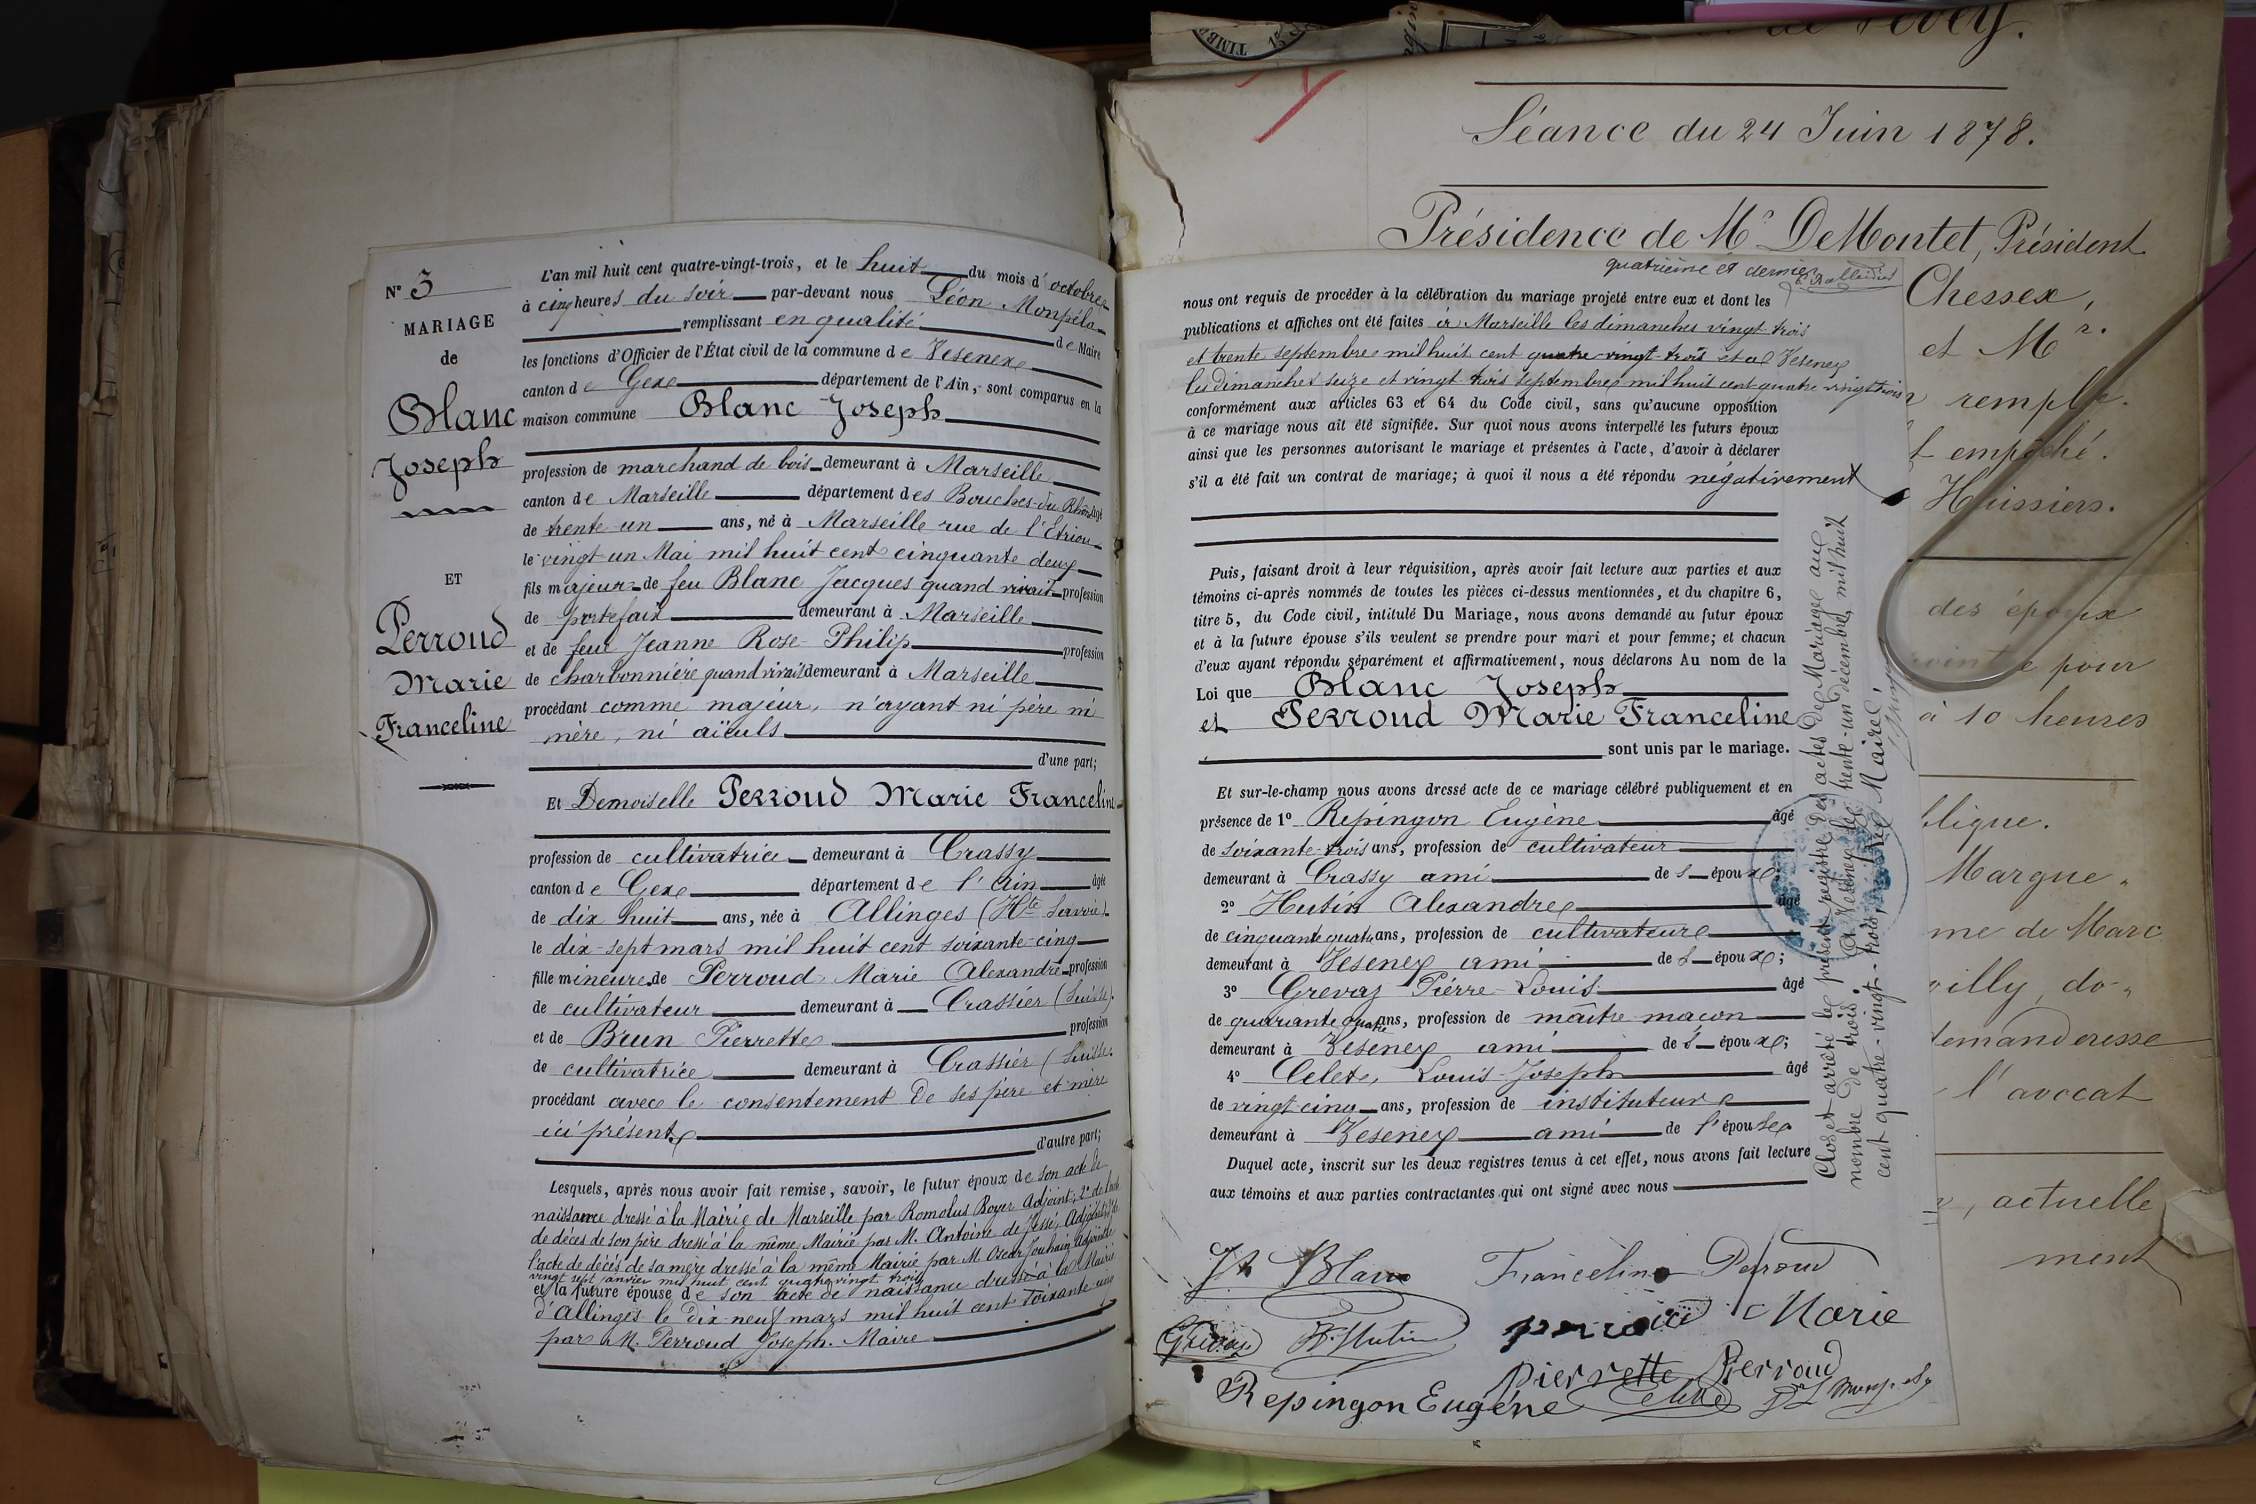 N° 3
MARIAGE
de
Blanc
Joseph
ET
Perroud
Marie
Franceline
L'an mil huit cent quatre-vingt-trois, et le huit du mois d'octobre
à cinq heures du soir par-devant nous Léon Monpéla
remplissant en qualité de Maire
les fonctions d'Officier de l'État civil de la commune de Vesenex
canton de Gex département de l'Ain, sont comparus en la
maison commune Blanc Joseph
profession de marchand de bois demeurant à Marseille
canton de Marseille département des Bouches-du Rhône âgé
de trente-un ans, né à Marseille rue de l'Etrieu
le vingt un Mai mil huit cent cinquante deux
fils majeur de feu Blanc Jacques quand vivait profession
de portefaix demeurant à Marseille
et de feue Jeanne Rose Philip profession
de charbonnière quand vivait demeurant à Marseille
procédant comme majeur, n'ayant ni père ni
mère, ni aïeuls
d'une part;
Et Demoiselle Perroud Marie Franceline
profession de cultivatrice demeurant à Crassy
canton de Gex département de l'Ain âgée
de dix huit ans, née à Allinges (Hte Savoie)
le dix-sept mars mil huit cent soixante-cinq
fille mineure de Perroud Marie Alexandre profession
de cultivateur demeurant à Crassier (Suisse).
et de Brun Pierrette profession
de cultivatrice demeurant à Crassier (Suisse.
procédant avec le consentement de ses père et mère
ici présents
d'autre part;
Lesquels, après nous avoir fait remise, savoir, le futur époux de son acte de
naissance dressé à la Mairie de Marseille par Romolus Boyer Adjoint; 2° de l'acte
de décès de son père dressé à la même Mairie par M. Antoine de Jessé, Adjoint;
l'acte de décès de sa mère dressé à la même Mairie par M. Oscar Jouhain adjoint le
vingt sept janvier mil huit cent quatre vingt trois
et la future épouse de son acte de naissance dressé à la Mairie
d'Allinges le dix-neuf mars mil huit cent soixante-cinq
par M. Perroud Joseph. Maire
Séance du 24 Juin 1878.
Présidence de Mr DeMontet, Président
Chessex,
et Mr.
empêché.
Huissiers.
des époux
pour
à 10 heures
Margue
me de Marc
do-
demanderesse
l'avocat
actuelle
ment
quatrième et dernier
nous ont requis de procéder à la célébration du mariage projeté entre eux et dont les
publications et affiches ont été faites à Marseille les dimanches vingt trois
et trente septembre mil huit cent quatre vingt-trois et à Vesenex
les dimanches seize et vingt-trois septembre mil huit cent quatre vingt trois
conformément aux articles 63 et 64 du Code civil, sans qu'aucune opposition
à ce mariage nous ait été signifiée. Sur quoi nous avons interpellé les futurs époux
ainsi que les personnes autorisant le mariage et présentes à l'acte, d'avoir à déclarer
s'il a été fait un contrat de mariage; à quoi il nous a été répondu négativement
Puis, faisant droit à leur réquisition, après avoir fait lecture aux parties et aux
témoins ci-après nommés de toutes les pièces ci-dessus mentionnées, et du chapitre 6,
titre 5, du Code civil, intitulé Du Mariage, nous avons demandé au futur époux
et à la future épouse s'ils veulent se prendre pour mari et pour femme; et chacun
d'eux ayant répondu séparément et affirmativement, nous déclarons Au nom de la
Loi que Blanc Joseph
et Perroud Marie Franceline
sont unis par le mariage.
Et sur-le-champ nous avons dressé acte de ce mariage célébré publiquement et en
présence de 1° Repingon Eugène âgé
de soixante-trois ans, profession de cultivateur
demeurant à Crassy ami des époux;
2° Hutin Alexandre âgé
de cinquante quatre ans, profession de cultivateur
demeurant à Vesenex ami des époux;
3° Grevaz Pierre-Louis âgé
de quarante quatre ans, profession de maître maçon
demeurant à Vesenex ami des époux;
4° Celet, Louis-Joseph âgé
de vingt cinq ans, profession de instituteur
demeurant à Vesenex ami de l'épouse
Duquel acte, inscrit sur les deux registres tenus à cet effet, nous avons fait lecture
aux témoins et aux parties contractantes qui ont signé avec nous
Jh Blanc
Franceline Perroud
Grevaz
Hutin
perroud Marie
pierrette Perroud
Repingon Eugène
Celet
Clos et arrêté le présent registre des actes de Mariage au
nombre de trois. A Vesenex le trente-un décembre, mil huit
cent quatre-vingt-trois. Le Maire,